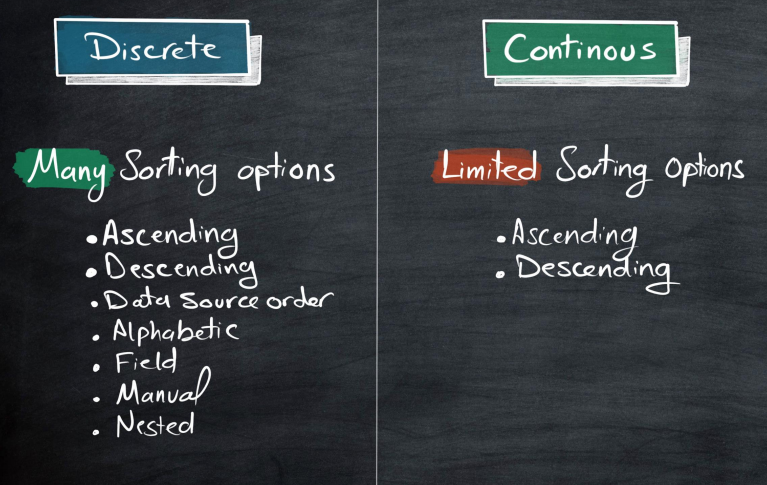 Discrete
Many Sorting options
• Ascending
• Descending
• Data Source order
• Alphabetic
• Field
• Manual
• Nested
Continous
Limited Sorting Options
• Ascending
• Descending